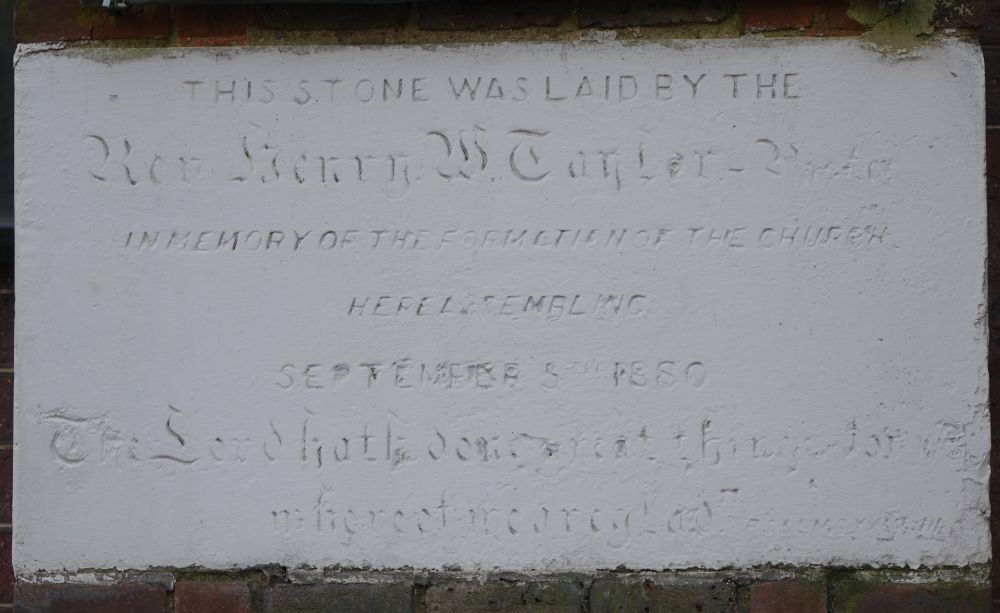 THIS STONE WAS LAID BY THE
Rev Henry W. Taylor - Pastor
IN MEMORY OF THE FORMATION OF THE CHURCH
HERE ASSEMBLING
SEPTEMBER 5TH 1880
The Lord hath done great things for us
whereof we are glad"